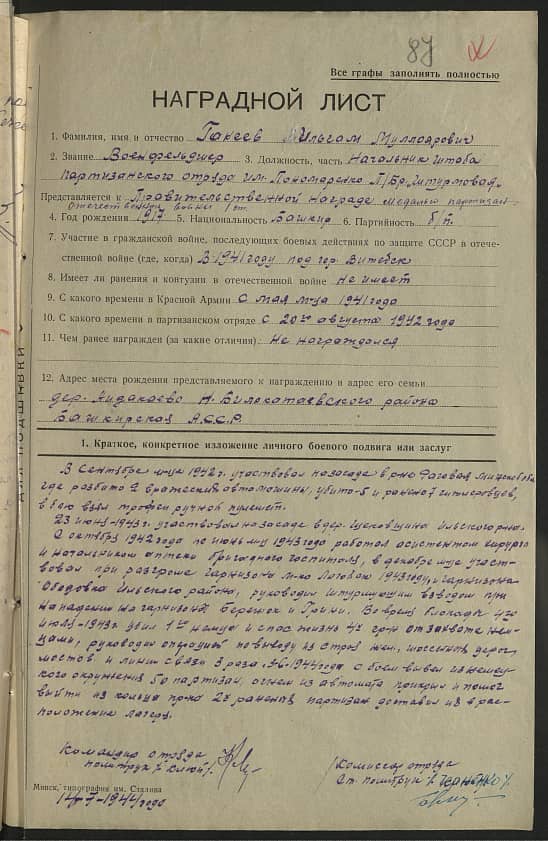 87
Все графы заполнять полностью
НАГРАДНОЙ ЛИСТ
1. Фамилия, имя и отчество Гакеев Ильгам Миллоярович
2. Звание Военфельдшер 3. Должность, часть Начальник штаба
партизанского отряда им. Пономаренко П/Бр. Штурмовая.
Представляется к Правительственной Награде медалью партизан
Отечественной войны I ст.
4. Год рождения 1917 5. Национальность Башкир 6. Партийность б/п.
7. Участие в гражданской войне, последующих боевых действиях по защите СССР в отече-
ственной войне (где, когда) В 1941 году под гор. Витебск
8. Имеет ли ранения и контузии в отечественной войне не имеет
9. С какого времени в Красной Армии с мая м-ца 1941 года
10. С какого времени в партизанском отряде с 20го августа 1942 года
11. Чем ранее награжден (за какие отличия) Не награждался
12. Адрес места рождения представляемого к награждению и адрес его семьи
дер. Айдакаево Н. Билокатаевского района
Башкирская АССР.
1. Краткое, конкретное изложение личного боевого подвига или заслуг
В Сентябре м-це 1942 г. участвовал на засаде в р-не
где разбито 2 вражеских автомашины, убито-5 и ранено гитлеровцев,
в бою взял трофеи ручной пулемет.
23 июня 1943 г. участвовал на засаде в дер. Щековщина Ильского р-на.
С октября 1942 года по июнь м-ц 1943 года работал асистентом хирурга
и начальником аптеки бригадного госпиталя, в декабре м-це участ-
вовал при разгроме гарнизона м-ко Логойск 1943 году, и гарнизона
Ободовка Ильского района, руководил штурмующим взводом при
нападении на гарнизоны Бережок и Во время блокады 4го
июля 1943 г. убил 1го немца и спас жизнь 4х гр-н от захвата нем-
цами, руководил операцией по выводу из строя жел., шоссейных дорог,
мостов и линии связи 3 раза. 1944 года с боем вывел из немец-
кого окружения 50 партизан, огнем из автомата прикрыл и помог
выйти из кольца 2х раненых партизан доставил их в рас-
положение лагеря.
Командир отряда
политрук
Комиссар отряда
Ст. политрук
Минск, типография им. Сталина
14-7-1944 года
ДЛЯ ПОДШИВКИ